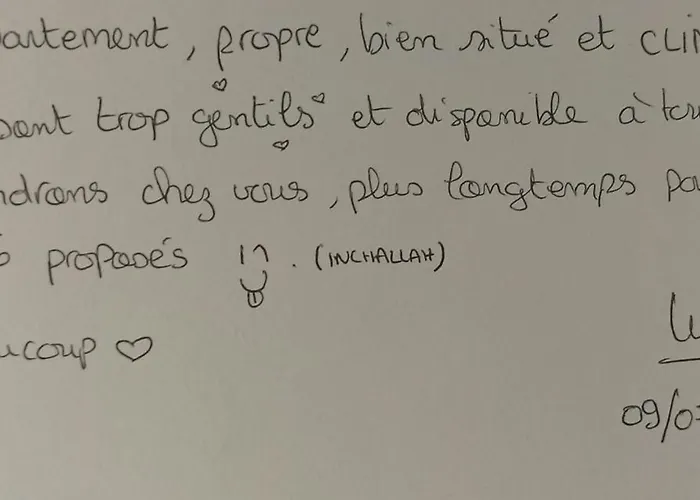 artement, propre, bien situé et CLIM
sont trop gentils et disponible à tou
ndrons chez vous, plus longtemps po
proposés . (INCHALLAH)
ucoup
09/0